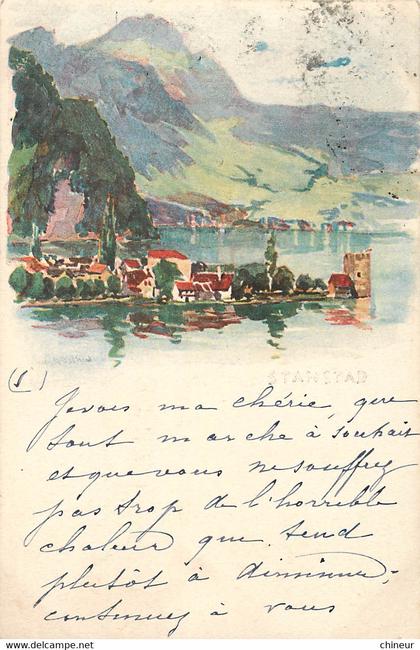 STANSTAD
(1)
Je vois ma chérie, que
tout marche à souhait
et que vous ne souffrez
pas trop de l'horrible
chaleur que tend
plutôt à diminuer;
continuez à vous
chineur